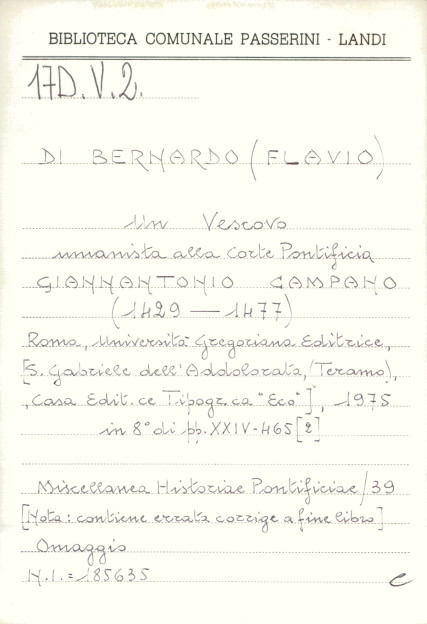 BIBLIOTECA COMUNALE PASSERINI - LANDI
17D.V.2.
DI BERNARDO (FLAVIO)
Un Vescovo
umanista alla Corte Pontificia
GIANNANTONIO CAMPANO
(1429 — 1477)
Roma, Università Gregoriana Editrice,
[S. Gabriele dell'Addolorata, (Teramo),
, Casa Edit.ce Tipogr.ca "Eco"], 1975
in 8° di pp. XXIV-465 [2]
Miscellanea Historiae Pontificiae / 39
[Nota: contiene errata corrige a fine libro]
Omaggio
N.I. = 185635
C